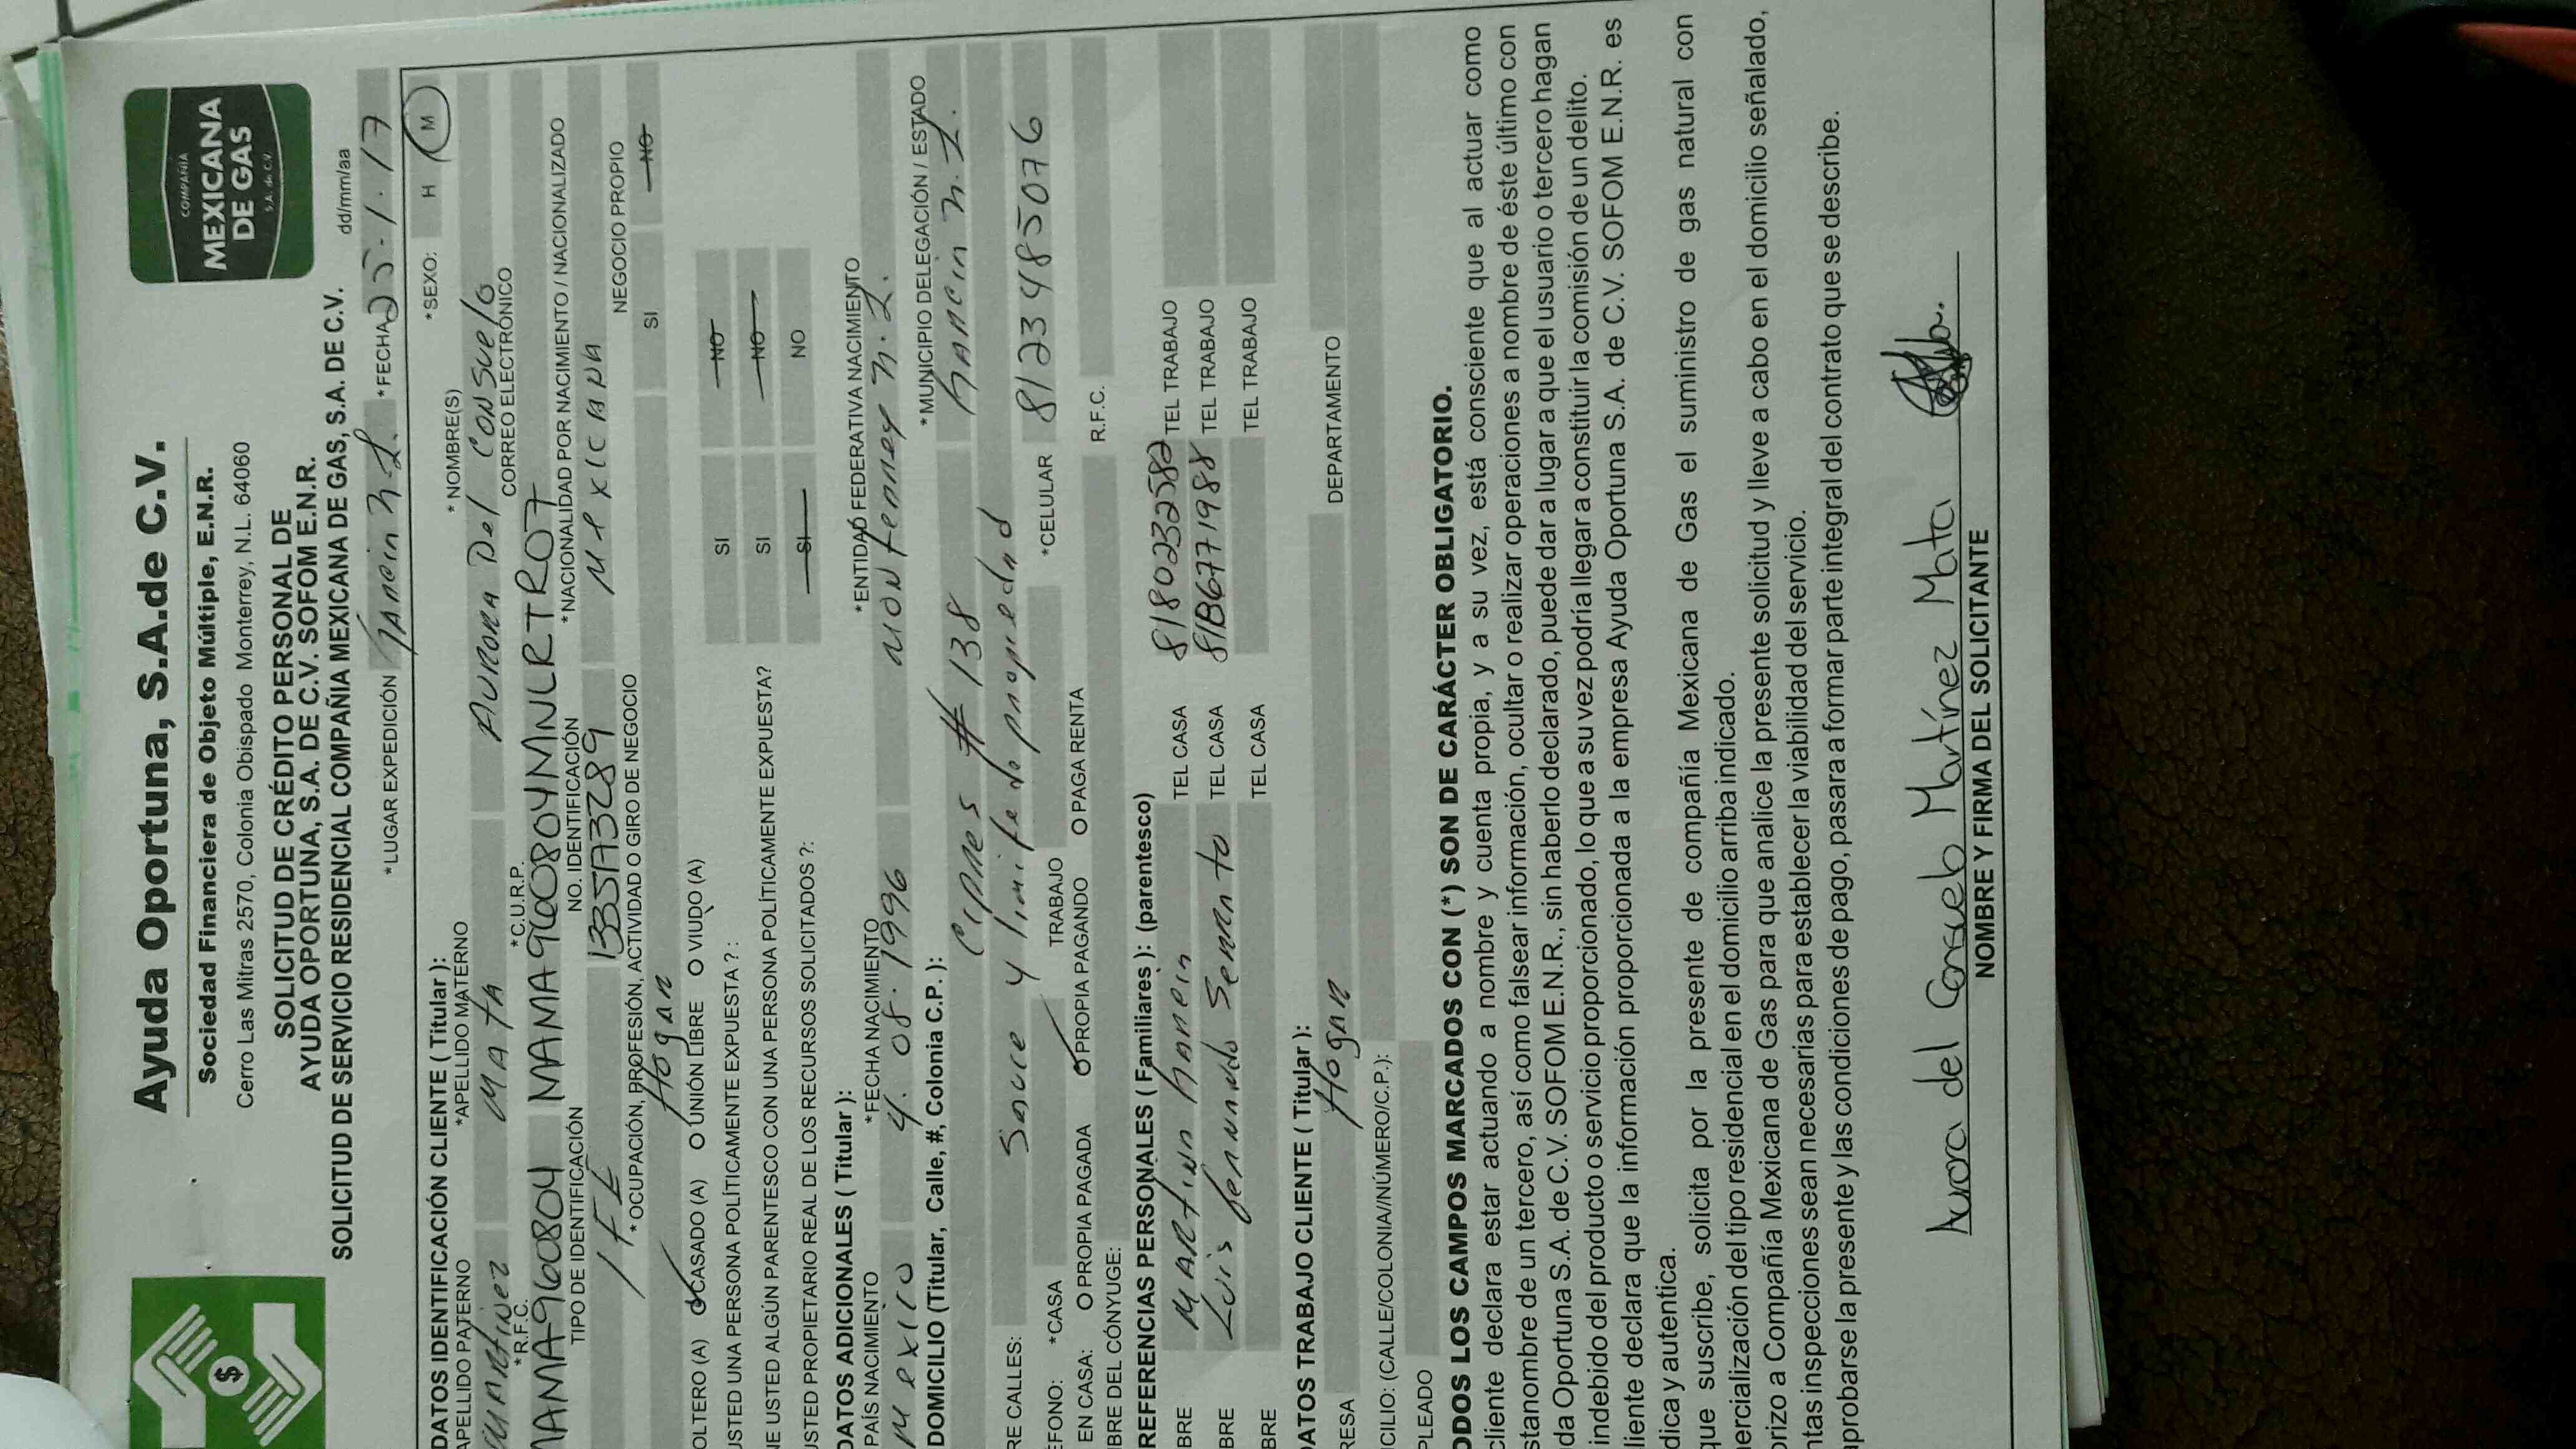 Ayuda Oportuna, S.A.de C.V.
Sociedad Financiera de Objeto Múltiple, E.N.R.
Cerro Las Mitras 2570, Colonia Obispado Monterrey, N.L. 64060
COMPAÑÍA
MEXICANA
DE GAS
S.A. de C.V.
SOLICITUD DE CRÉDITO PERSONAL DE
AYUDA OPORTUNA, S.A. DE C.V. SOFOM E.N.R.
SOLICITUD DE SERVICIO RESIDENCIAL COMPAÑIA MEXICANA DE GAS, S.A. DE C.V.
dd/mm/aa
*LUGAR EXPEDICIÓN N.L. *FECHA 25.1.17
DATOS IDENTIFICACIÓN CLIENTE ( Titular ): *SEXO: H M
APELLIDO PATERNO *APELLIDO MATERNO * NOMBRE(S)
MARTINEZ MATA AURORA Del CONSUELO
*R.F.C. *C.U.R.P. CORREO ELECTRÓNICO
MAMA960804 MAMA960804MNLRTR07
TIPO DE IDENTIFICACIÓN NO. IDENTIFICACIÓN *NACIONALIDAD POR NACIMIENTO / NACIONALIZADO
IFE MEXICANA
* OCUPACIÓN, PROFESIÓN, ACTIVIDAD O GIRO DE NEGOCIO NEGOCIO PROPIO
Hogar SI NO
OLTERO (A) O CASADO (A) O UNIÓN LIBRE O VIUDO (A)
USTED UNA PERSONA POLÍTICAMENTE EXPUESTA ? : SI NO
NE USTED ALGÚN PARENTESCO CON UNA PERSONA POLÍTICAMENTE EXPUESTA? SI NO
USTED PROPIETARIO REAL DE LOS RECURSOS SOLICITADOS ?: SI NO
DATOS ADICIONALES ( Titular ):
PAÍS NACIMIENTO *FECHA NACIMIENTO *ENTIDAD FEDERATIVA NACIMIENTO
MEXICO 4.08.1996 MONTERREY N.L.
DOMICILIO (Titular, Calle, #, Colonia C.P.): *MUNICIPIO DELEGACIÓN / ESTADO
Cipres # 138 N.L.
RE CALLES: Sauce y limite de propiedad
ÉFONO: *CASA TRABAJO *CELULAR 8123485076
EN CASA: O PROPIA PAGADA O PROPIA PAGANDO O PAGA RENTA
IBRE DEL CÓNYUGE: R.F.C.
REFERENCIAS PERSONALES ( Familiares ): (parentesco)
BRE MARTINA TEL CASA 8180232582 TEL TRABAJO
BRE Luis TEL CASA TEL TRABAJO
BRE TEL CASA TEL TRABAJO
DATOS TRABAJO CLIENTE ( Titular ):
RESA Hogar DEPARTAMENTO
ICILIO: (CALLE/COLONIA//NÚMERO/C.P.):
PLEADO
ODOS LOS CAMPOS MARCADOS CON (*) SON DE CARÁCTER OBLIGATORIO.
cliente declara estar actuando a nombre y cuenta propia, y a su vez, está consciente que al actuar como
stanombre de un tercero, así como falsear información, ocultar o realizar operaciones a nombre de éste último con
da Oportuna S.A. de C.V. SOFOM E.N.R., sin haberlo declarado, puede dar a lugar a que el usuario o tercero hagan
indebido del producto o servicio proporcionado, lo que a su vez podría llegar a constituir la comisión de un delito.
liente declara que la información proporcionada a la empresa Ayuda Oportuna S.A. de C.V. SOFOM E.N.R. es
dica y autentica.
que suscribe, solicita por la presente de compañía Mexicana de Gas el suministro de gas natural con
nercialización del tipo residencial en el domicilio arriba indicado.
orizo a Compañía Mexicana de Gas para que analice la presente solicitud y lleve a cabo en el domicilio señalado,
ntas inspecciones sean necesarias para establecer la viabilidad del servicio.
aprobarse la presente y las condiciones de pago, pasara a formar parte integral del contrato que se describe.
Aurora del Consuelo Martínez Mata
NOMBRE Y FIRMA DEL SOLICITANTE